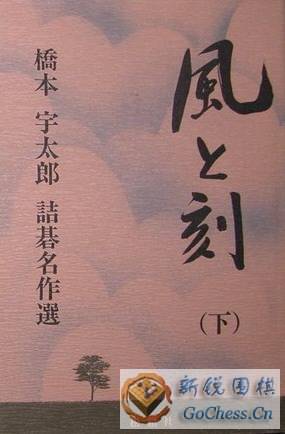 風と刻
(下)
橋本 宇太郎 詰碁名作選
新锐围棋
GoChess.Cn